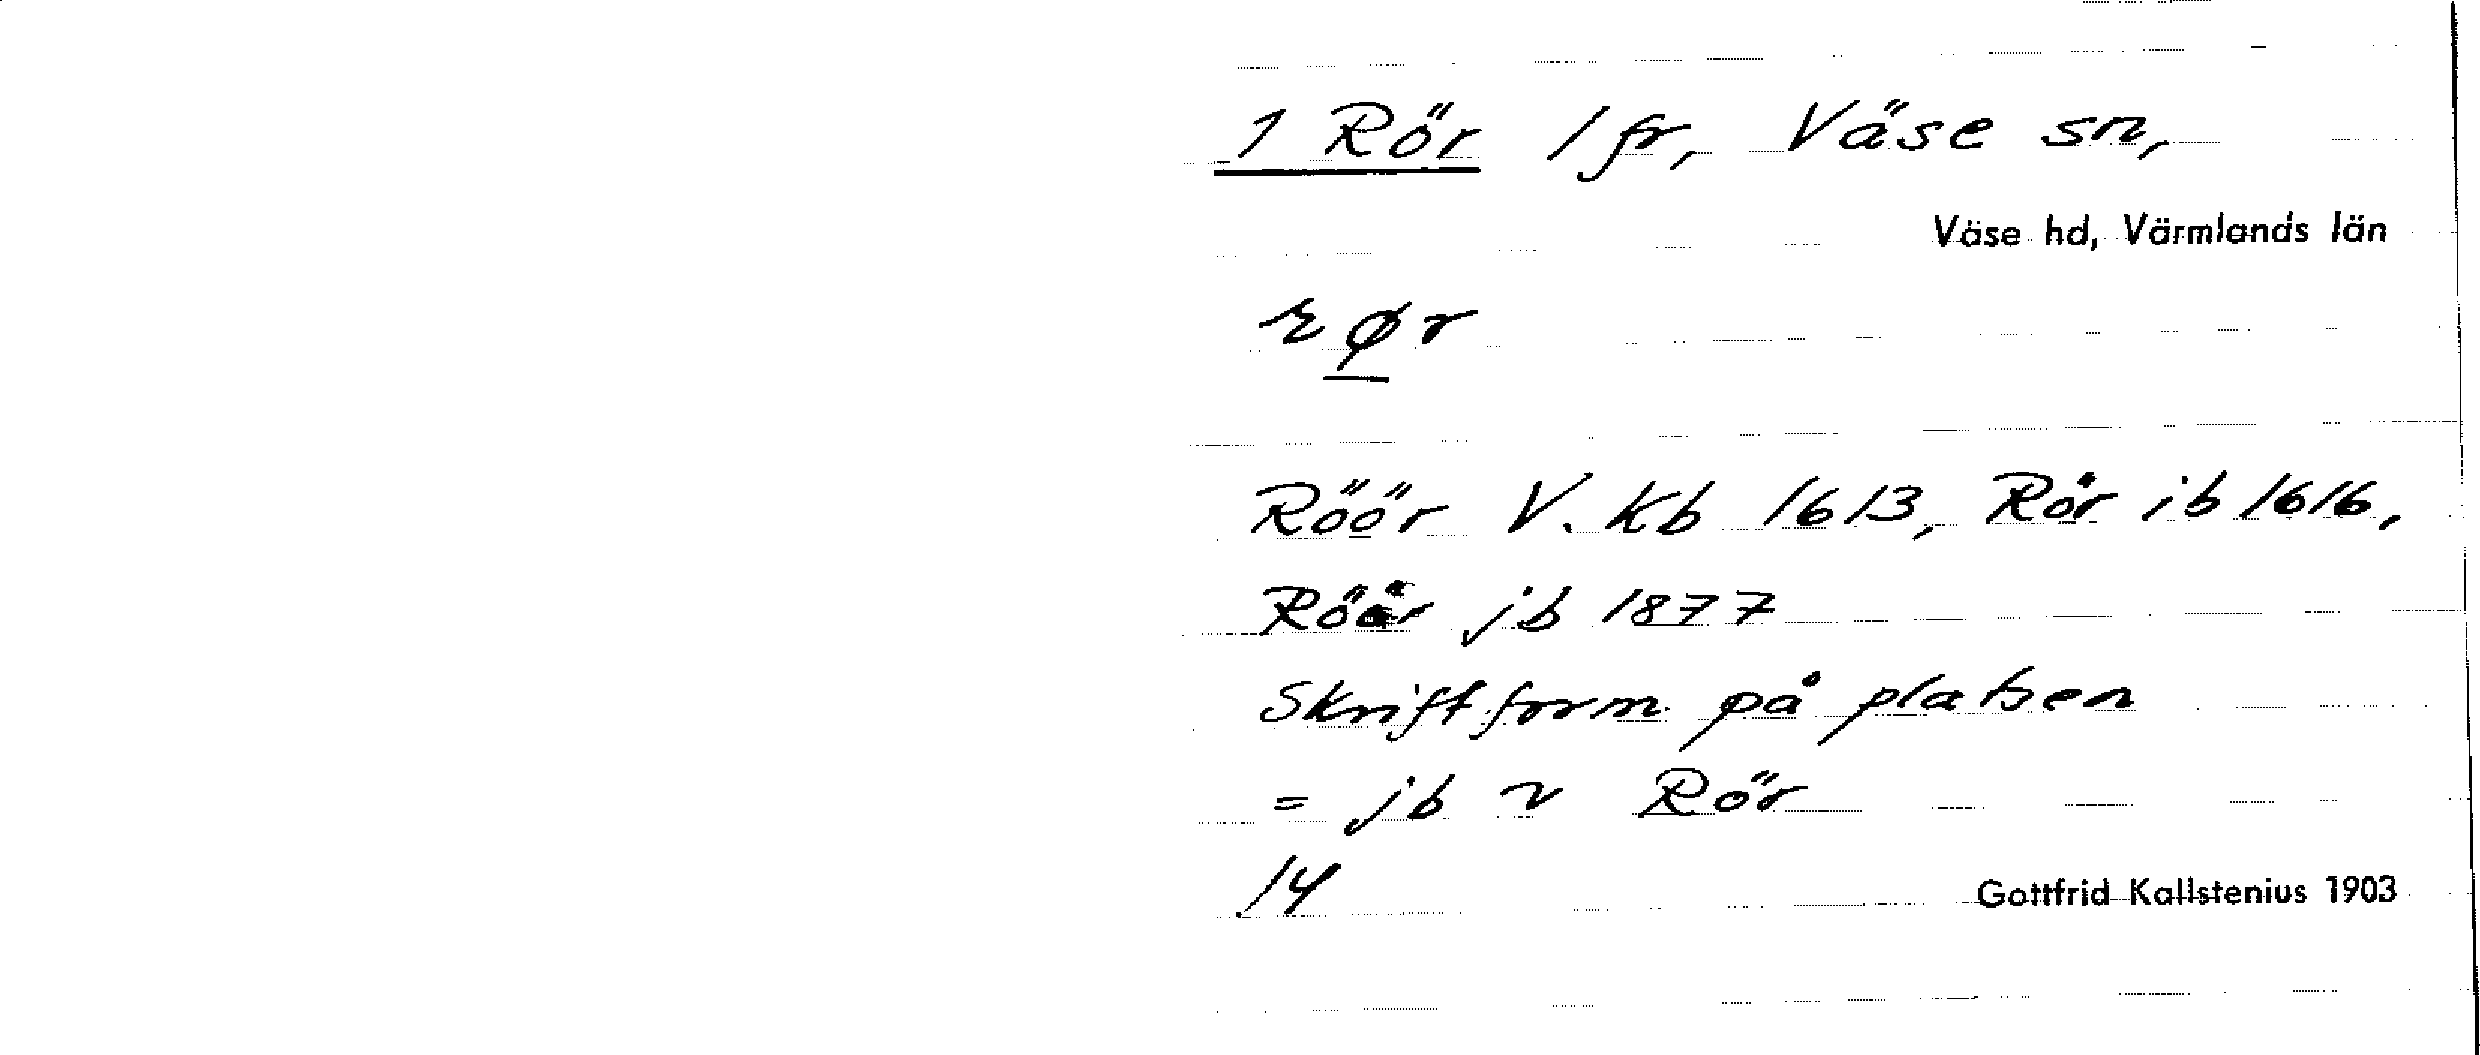 1 Rör 1 fr, Väse sn,
Väse hd, Värmlands län
rør
Röör V. Kb 1613, Rår ib 1616,
Röår jb 1877
Skriftform på platsen
= jb v Rör
14
Gottfrid Kallstenius 1903